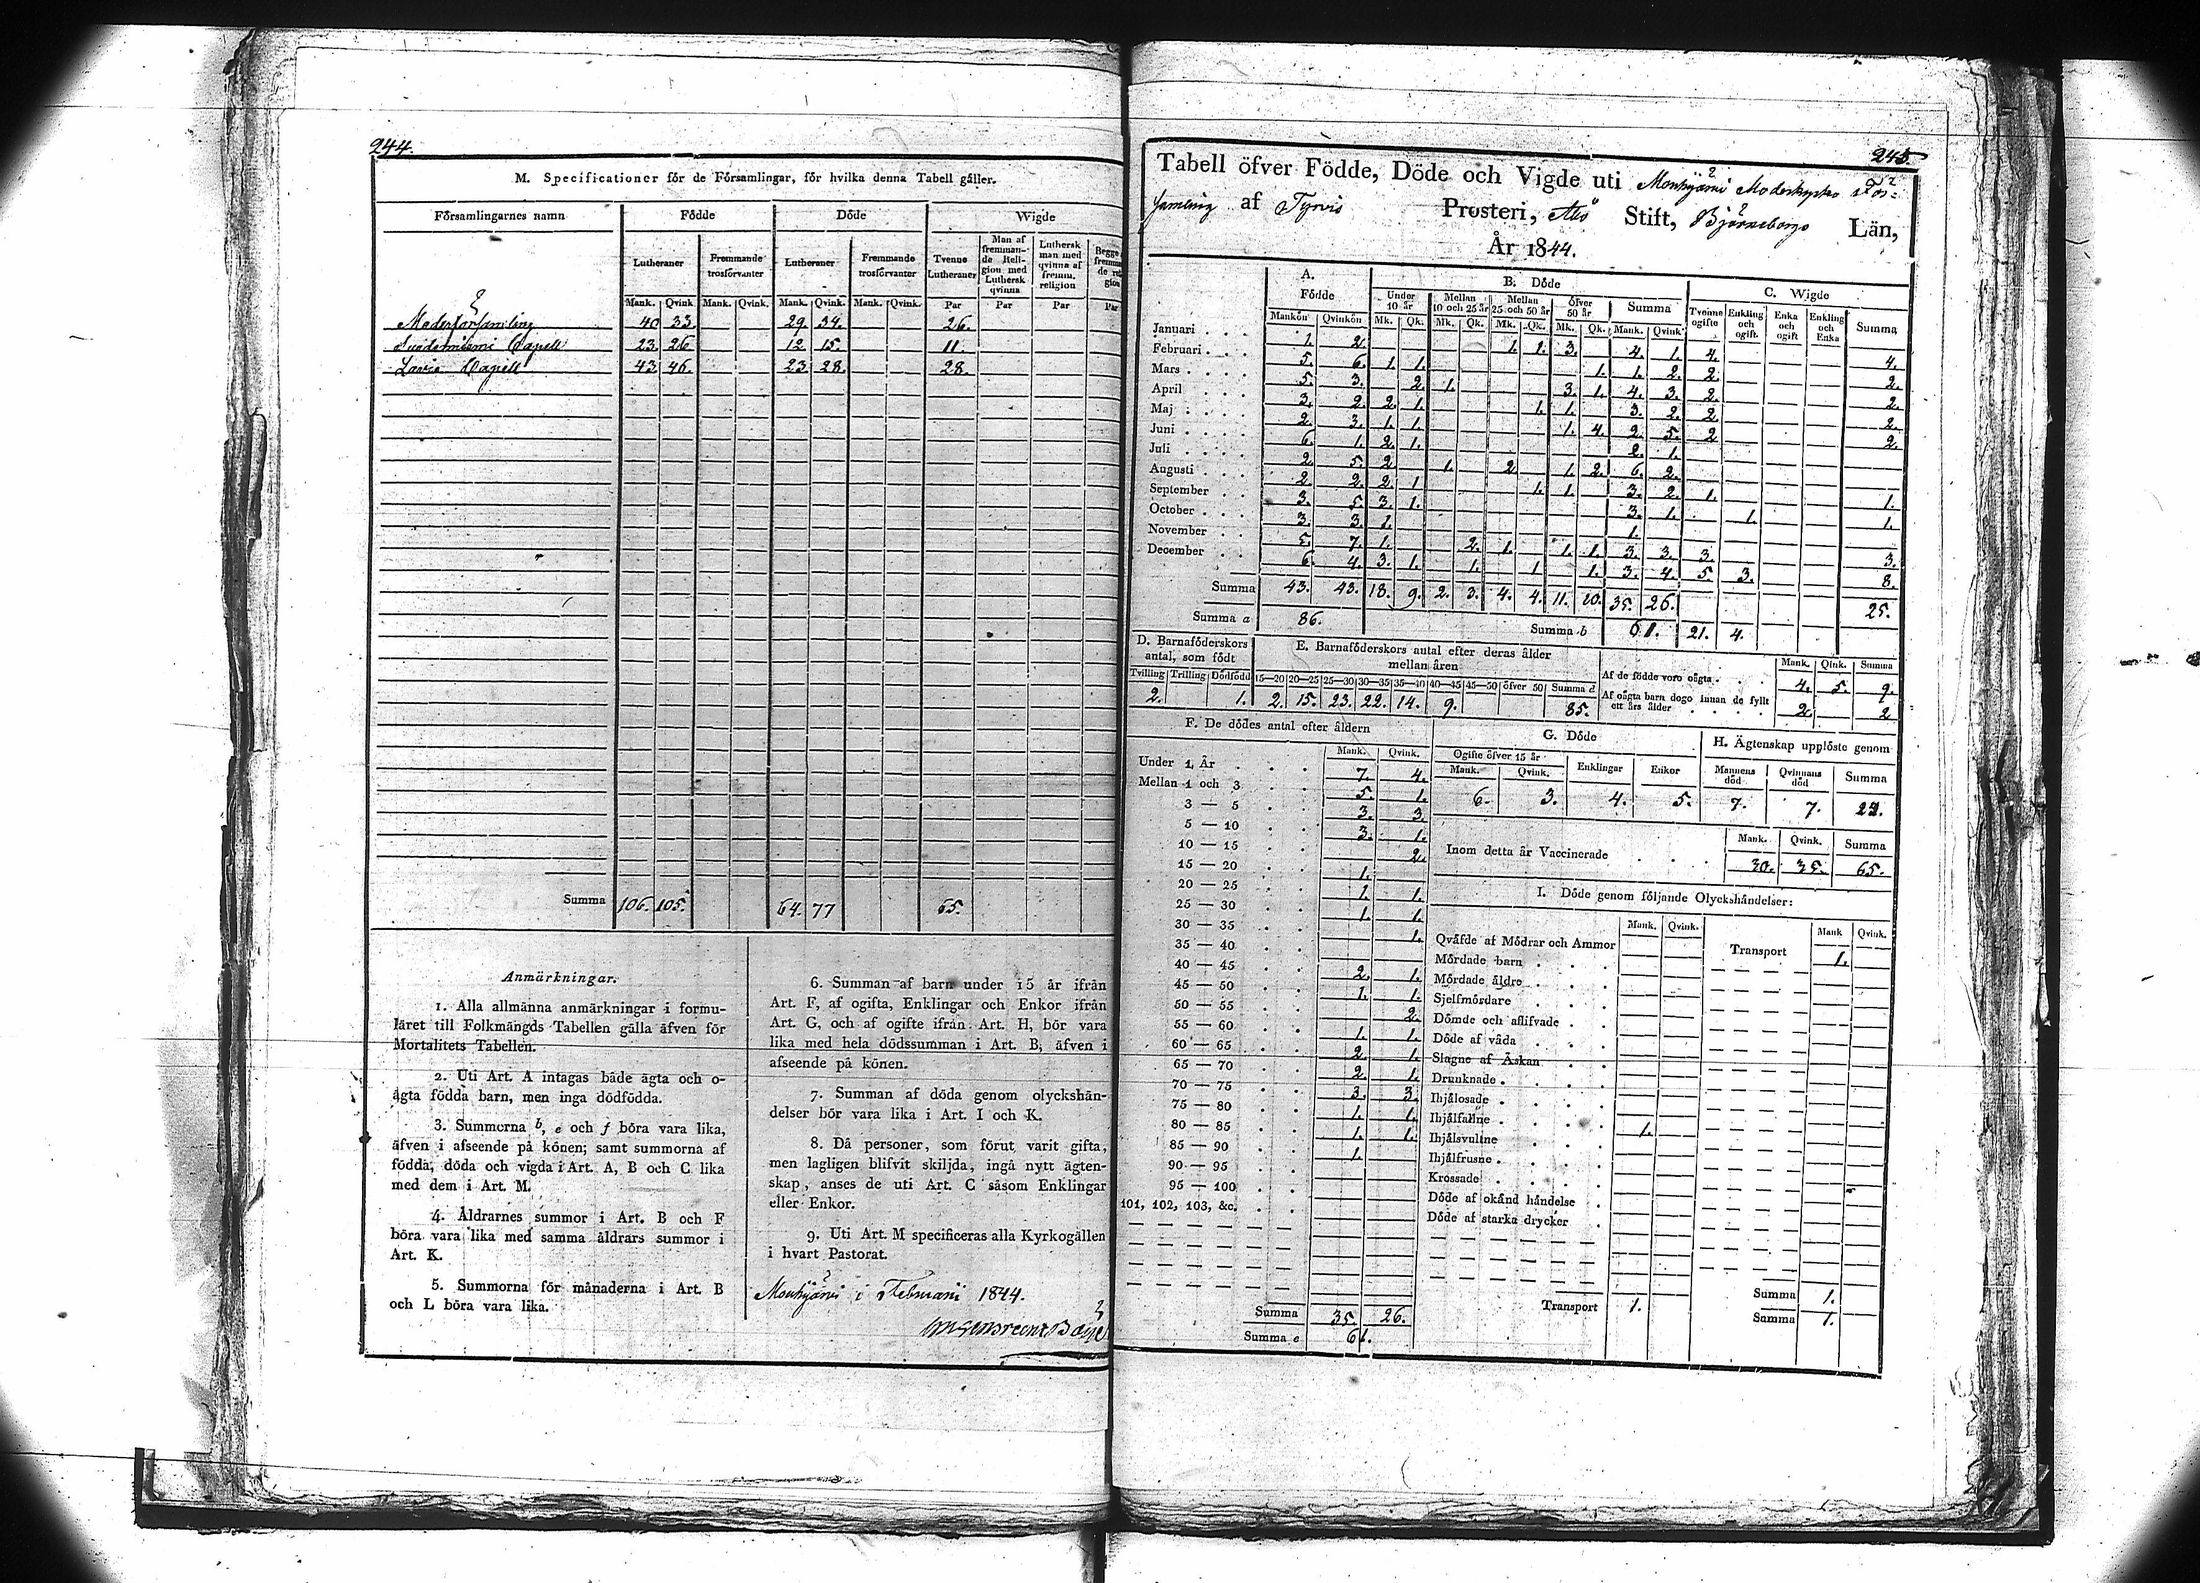 244.
M. Specificationer för de Församlingar, för hvilka denna Tabell gäller.
Församlingarnes namn Födde Döde Wigde
Lutheraner Fremmande trosförvanter Lutheraner Fremmande trosförvanter Tvenne Lutheraner Man af fremmande Religion med Luthersk qvinna Luthersk man med qvinna af fremm. religion
Mank. Qvink. Mank. Qvink. Mank. Qvink. Mank. Qvink. Par Par Par Par
Moderförsamling 40 33. 29. 34. 26.
Suodeniemi Capell 23. 26 12 15. 11.
Lavia Capell 43. 46. 23. 28. 28.
Summa 106. 105. 64. 77 65.
Anmärkningar.
1. Alla allmänna anmärkningar i formu-
läret till Folkmängds Tabellen gälla äfven för
Mortalitets Tabellen.
2. Uti Art. A intagas både ägta och o-
ägta födda barn, men inga dödfödda.
3. Summorna b, e och f böra vara lika,
äfven i afseende på könen; samt summorna af
födda, döda och vigda i Art. A, B och C lika
med dem i Art. M.
4. Åldrarnes summor i Art. B och F
böra vara lika med samma åldrars summor i
Art. K.
5. Summorna för månaderna i Art. B
och L böra vara lika.
6. Summan af barn under 15 år ifrån
Art. F, af ogifta, Enklingar och Enkor ifrån
Art. G, och af ogifte ifrån Art. H, bör vara
lika med hela dödssumman i Art. B, äfven i
afseende på könen.
7. Summan af döda genom olyckshän-
delser bör vara lika i Art. I och K.
8. Då personer, som förut varit gifta,
men lagligen blifvit skiljda, ingå nytt ägten-
skap, anses de uti Art. C såsom Enklingar
eller Enkor.
9. Uti Art. M specificeras alla Kyrkogällen
i hvart Pastorat.
Mouhijärvi i Februarii 1844.
245.
Tabell öfver Födde, Döde och Vigde uti Mouhijärvi Moderkyrko För-
samling af Tyrvis Prosteri, Åbo Stift, Björneborgs Län,
År 1844.
A. Födde B. Döde C. Wigde
Under 10 år Mellan 10 och 25 år Mellan 25 och 50 år öfver 50 år Summa Tvenne ogifte Enkling och ogift. Enka och ogift Enkling och Enka Summa
Mankön Qvinkön Mk. Qk. Mk. Qk. Mk. Qk. Mk. Qk. Mank. Qvink.
Januari 1. 2. 1. 1. 3. 4. 1. 4. 4.
Februari 5. 6. 1. 1. 1. 1. 2. 2. 2.
Mars 5. 3. 2. 1. 3. 1. 4. 3. 2. 2.
April 3. 2. 2. 1. 1. 1. 3. 2. 2 2.
Maj 2. 3. 1. 1. 1. 4. 2. 5. 2 2.
Juni 6. 1. 2. 1. 2. 1.
Juli 2. 5. 2 1. 2 1. 2. 6. 2.
Augusti 2. 2. 2. 1 1. 1. 3. 2. 1. 1.
September 3. 5. 3. 1. 3. 1. 1. 1.
October 3. 3. 1. 1.
November 5. 7. 1. 2. 1. 1. 1. 3. 3. 3. 3.
December 6 4. 3. 1. 1. 1 1. 3. 4. 5 3. 8.
Summa 43. 43. 18. 9. 2. 3. 4. 4. 11. 10. 35. 26. 25.
Summa a 86. Summa b 61. 21. 4.
D. Barnaföderskors antal, som födt
Tvilling Trilling Dödfödd
2. 1.
E. Barnaföderskors antal efter deras ålder mellan åren
15—20 20—25 25—30 30—35 35—40 40—45 45—50 öfver 50 Summa d
2. 15. 23. 22. 14. 9. 85.
Mank. Qink. Summa
Af de födde voro oägta 4. 5. 9.
Af oägta barn dogo innan de fyllt ett års ålder 2. 2
F. De dödes antal efter åldern
Mank. Qvink.
Under 1 År 7. 4.
Mellan 1 och 3 5. 1.
3 — 5 3. 3.
5 — 10 3. 1.
10 — 15 2.
15 — 20 1.
20 — 25 1. 1.
25 — 30 1. 1.
30 — 35 1.
35 — 40
40 — 45 2. 1.
45 — 50 1. 1.
50 — 55 2.
55 — 60 1. 1.
60 — 65 2. 1.
65 — 70 2. 1.
70 — 75 3. 3.
75 — 80 1. 1.
80 — 85 1. 1.
85 — 90 1.
90 — 95
95 — 100
101, 102, 103, &c.
Summa 35. 26.
Summa e 61.
G. Döde
Ogifte öfver 15 år Enklingar Enkor
Mank. Qvink.
6. 3. 4. 5.
H. Ägtenskap upplöste genom
Mannens död Qvinnans död Summa
7. 7.
Mank. Qvink. Summa
Inom detta år Vaccinerade 30. 35. 65.
I. Döde genom följande Olyckshändelser:
Mank. Qvink. Mank Qvink.
Qväfde af Mödrar och Ammor Transport 1.
Mördade barn
Mördade äldre
Sjelfmördare
Dömde och aflifvade
Döde af våda
Slagne af Åskan
Drunknade
Ihjälosade
Ihjälfallne
Ihjälsvultne 1.
Ihjälfrusne
Krossade
Döde af okänd händelse
Döde af starka drycker
Transport 1. Summa 1.
Summa 1.